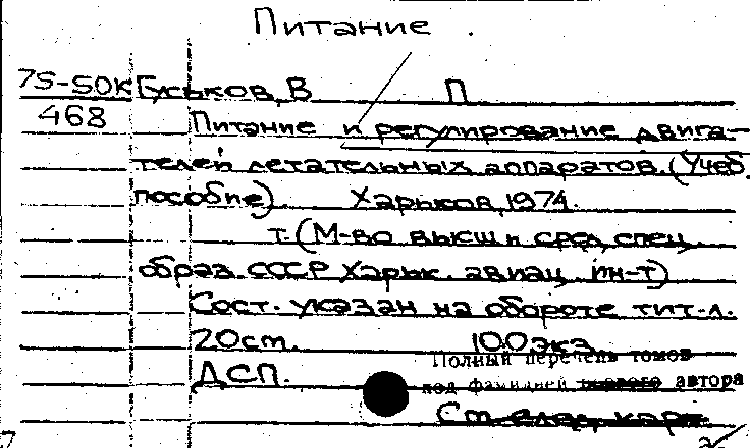 Питание
75-50К Гуськов, В П
468 Питание и регулирование двига-
телей летательных аппаратов. (Учеб.
пособие). Харьков, 1974.
т. (М-во высш и сред спец.
образ СССР Харьк. авиац. ин-т)
Сост. указан на обороте тит-л.
20см. 100 экз.
Полный перечень томов
ДСП.
под фамилией первого автора
См. след. карт.